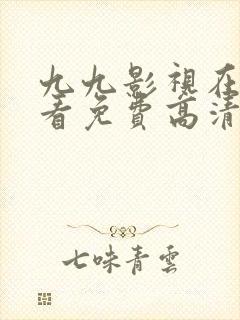 九九影視在
看免費高清
七味青雲